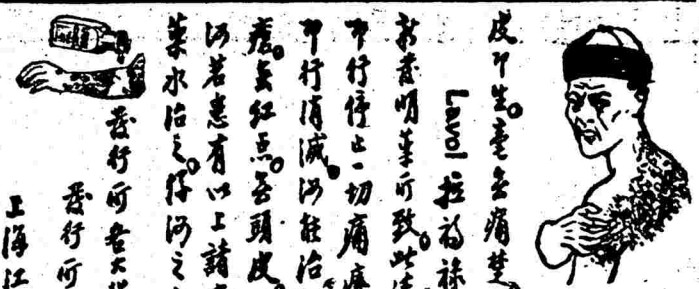 皮即生。毫無痛楚。
Lavol 拉福祿
新發明藥所致。此
即行停止一切痛癢
即行消滅。河能治
瘡。無紅点。無頭皮。
河若患有以上諸
藥水治之。得河之
發行所各大
發行所
上海江